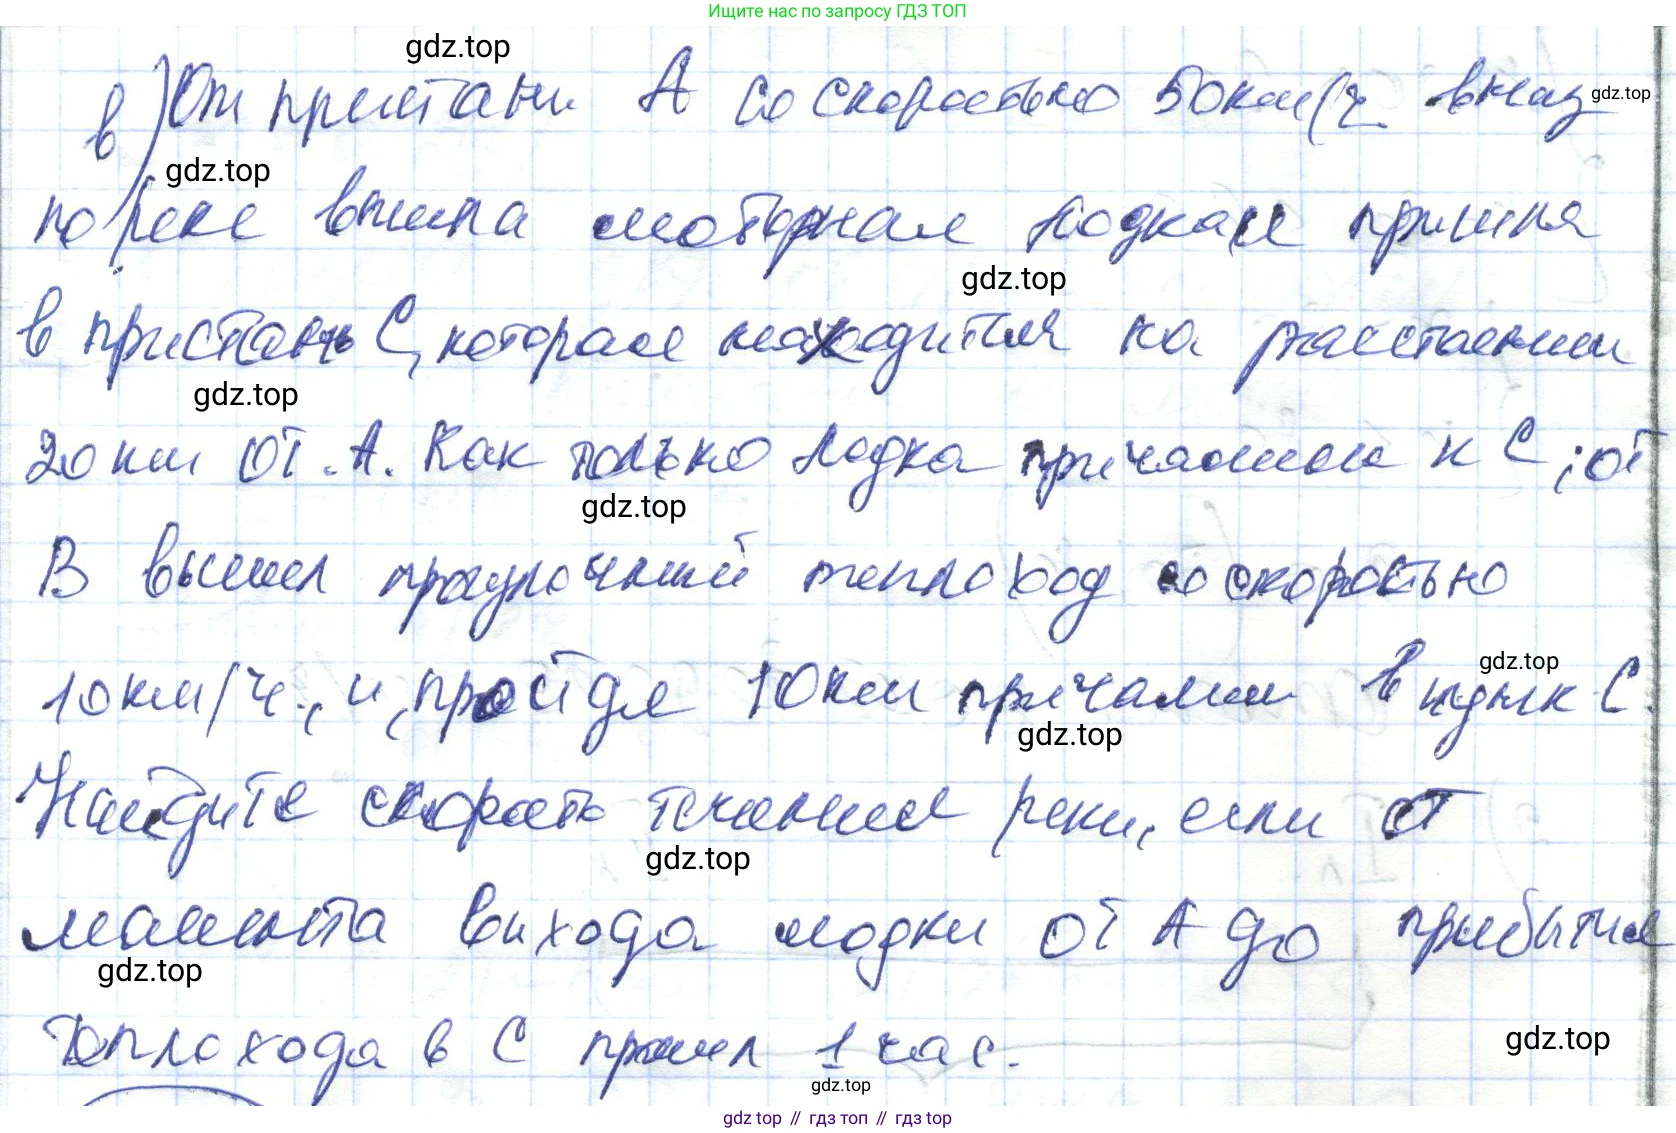 Ищите нас по запросу ГДЗ ТОП
gdz.top
в) От пристани А со скоростью 50 км/ч вниз gdz.top
gdz.top
по реке вышла моторная лодка и пришла
gdz.top
в пристань С, которая находится на расстоянии
gdz.top
20 км от А. Как только лодка причалила к С, от
gdz.top
В вышел прогулочный теплоход со скоростью
gdz.top
10 км/ч, и, пройдя 10 км причалил в пункт С.
gdz.top
Найдите скорость течения реки, если от
gdz.top
момента выхода лодки от А до прибытия
gdz.top
теплохода в С прошел 1 час.
gdz.top
gdz.top
gdz.top // гдз топ // гдз top